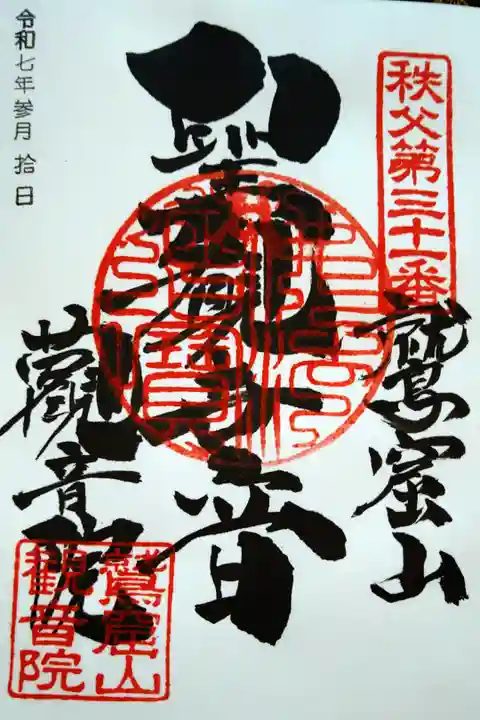 秩父第三十一番
鷲窟山
聖観音
觀音院
令和七年参月拾日
鷲窟山
観音院